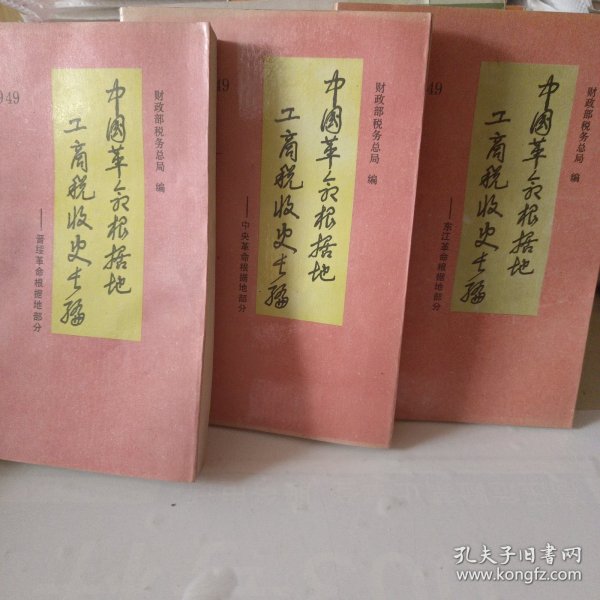 949
财政部税务总局 编
中国革命根据地
工商税收史长编
——晋绥革命根据地部分
49
财政部税务总局 编
中国革命根据地
工商税收史长编
——中央革命根据地部分
49
财政部税务总局 编
中国革命根据地
工商税收史长编
——东江革命根据地部分
孔夫子旧书网
www.kongfz.com